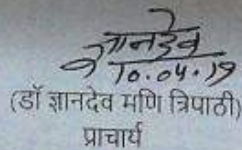 ज्ञानदेव
10.04.19
(डॉ ज्ञानदेव मणि त्रिपाठी)
प्राचार्य